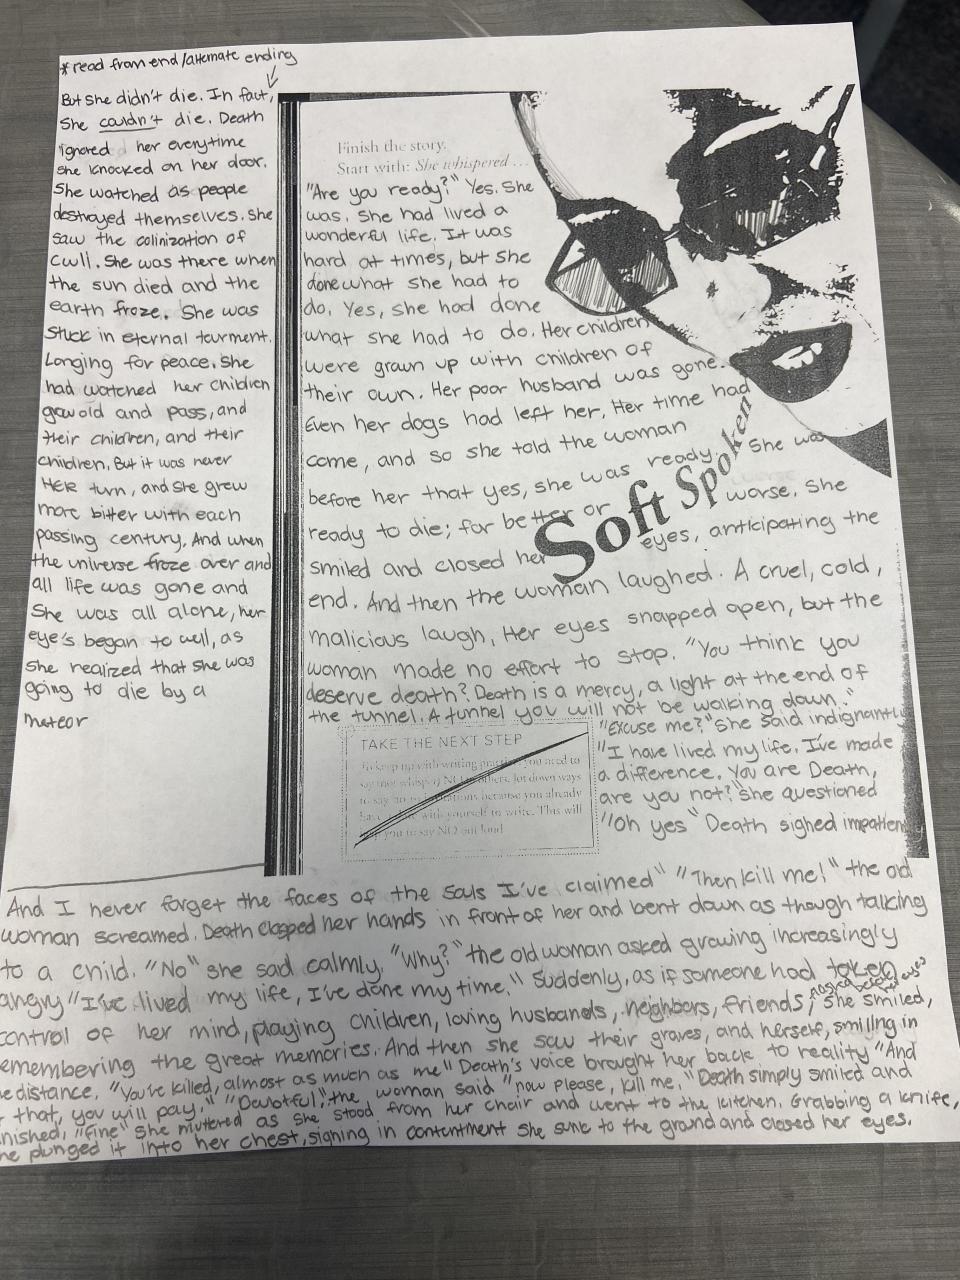 *read from end/alternate ending
But she didn't die. In fact,
she couldn't die. Death
ignored her everytime
she knocked on her door.
She watched as people
destroyed themselves. She
saw the colinization of
cwll. She was there when
the sun died and the
earth froze. She was
stuck in eternal turment.
Longing for peace. She
had watched her children
grow old and pass, and
their children, and their
children. But it was never
HER turn, and she grew
more bitter with each
passing century. And when
the universe froze over and
all life was gone and
she was all alone, her
eye's began to well, as
she realized that she was
going to die by a
meteor
Finish the story.
Start with: She whispered ...
"Are you ready?" Yes. She
was. She had lived a
wonderful life. It was
hard at times, but she
done what she had to
do. Yes, she had done
what she had to do. Her children
were grown up with children of
their own. Her poor husband was gone.
Even her dogs had left her. Her time had
come, and so she told the woman
before her that yes, she was ready. She was
ready to die; for better or worse. She
smiled and closed her eyes, anticipating the
end. And then the woman laughed. A cruel, cold,
malicious laugh. Her eyes snapped open, but the
woman made no effort to stop. "You think you
deserve death? Death is a mercy, a light at the end of
the tunnel. A tunnel you will not be walking down."
Soft Spoken
TAKE THE NEXT STEP
To keep up with writing you need to
say (not whisper) NO others. Jot down ways
to say no to because you already
have with yourself to write. This will
you to say NO out loud
"Excuse me?" she said indignantly
"I have lived my life. I've made
a difference. You are Death,
are you not?" she questioned
"Oh yes" Death sighed
And I never forget the faces of the souls I've claimed" "Then kill me!" the old
woman screamed. Death clasped her hands in front of her and bent down as though talking
to a child. "No" she said calmly. "Why?" the old woman asked growing increasingly
angry "I've lived my life, I've done my time." Suddenly, as if someone had token
control of her mind, playing children, loving husbands, neighbors, friends, eyes she smiled,
remembering the great memories. And then she saw their graves, and herself, smiling in
the distance. "You've killed, almost as much as me" Death's voice brought her back to reality "And
that, you will pay." "Doubtful," the woman said "now please, kill me." Death simply smiled and
"Fine" she muttered as she stood from her chair and went to the kitchen. Grabbing a knife,
she plunged it into her chest, signing in contentment she sunk to the ground and closed her eyes.